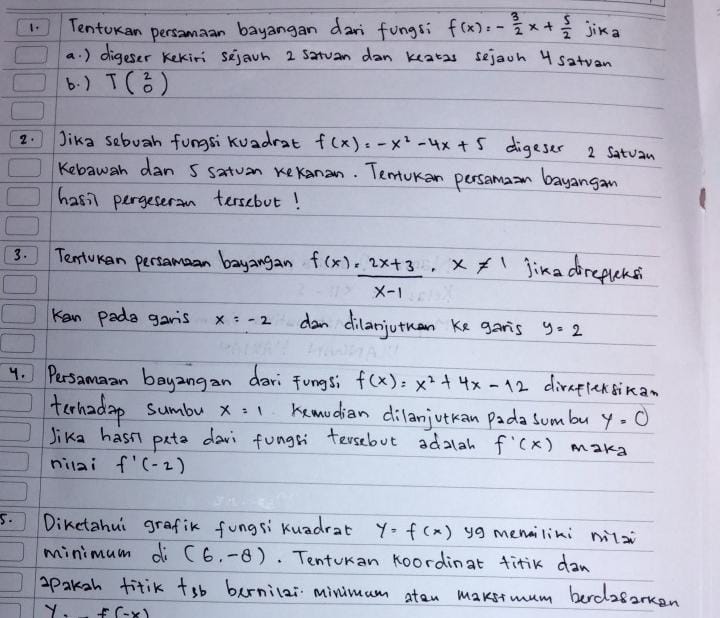 1. Tentukan persamaan bayangan dari fungsi f(x) = - 3/2 x + 5/2 jika
a.) digeser kekiri sejauh 2 satuan dan keatas sejauh 4 satuan
b.) T (2 0)
2. Jika sebuah fungsi kuadrat f(x) = -x² - 4x + 5 digeser 2 satuan
kebawah dan 5 satuan kekanan. Tentukan persamaan bayangan
hasil pergeseran tersebut !
3. Tentukan persamaan bayangan f(x) = 2x+3 / x-1 , x ≠ 1 jika direfleksi
kan pada garis x = -2 dan dilanjutkan ke garis y = 2
4. Persamaan bayangan dari fungsi f(x) = x² + 4x - 12 direfleksikan
terhadap sumbu x = 1 kemudian dilanjutkan pada sumbu y = 0
Jika hasil peta dari fungsi tersebut adalah f'(x) maka
nilai f'(-2)
5. Diketahui grafik fungsi kuadrat y = f(x) yg memiliki nilai
minimum di (6, -8). Tentukan koordinat titik dan
apakah titik tsb bernilai minimum atau maksimum berdasarkan
y = f(-x)